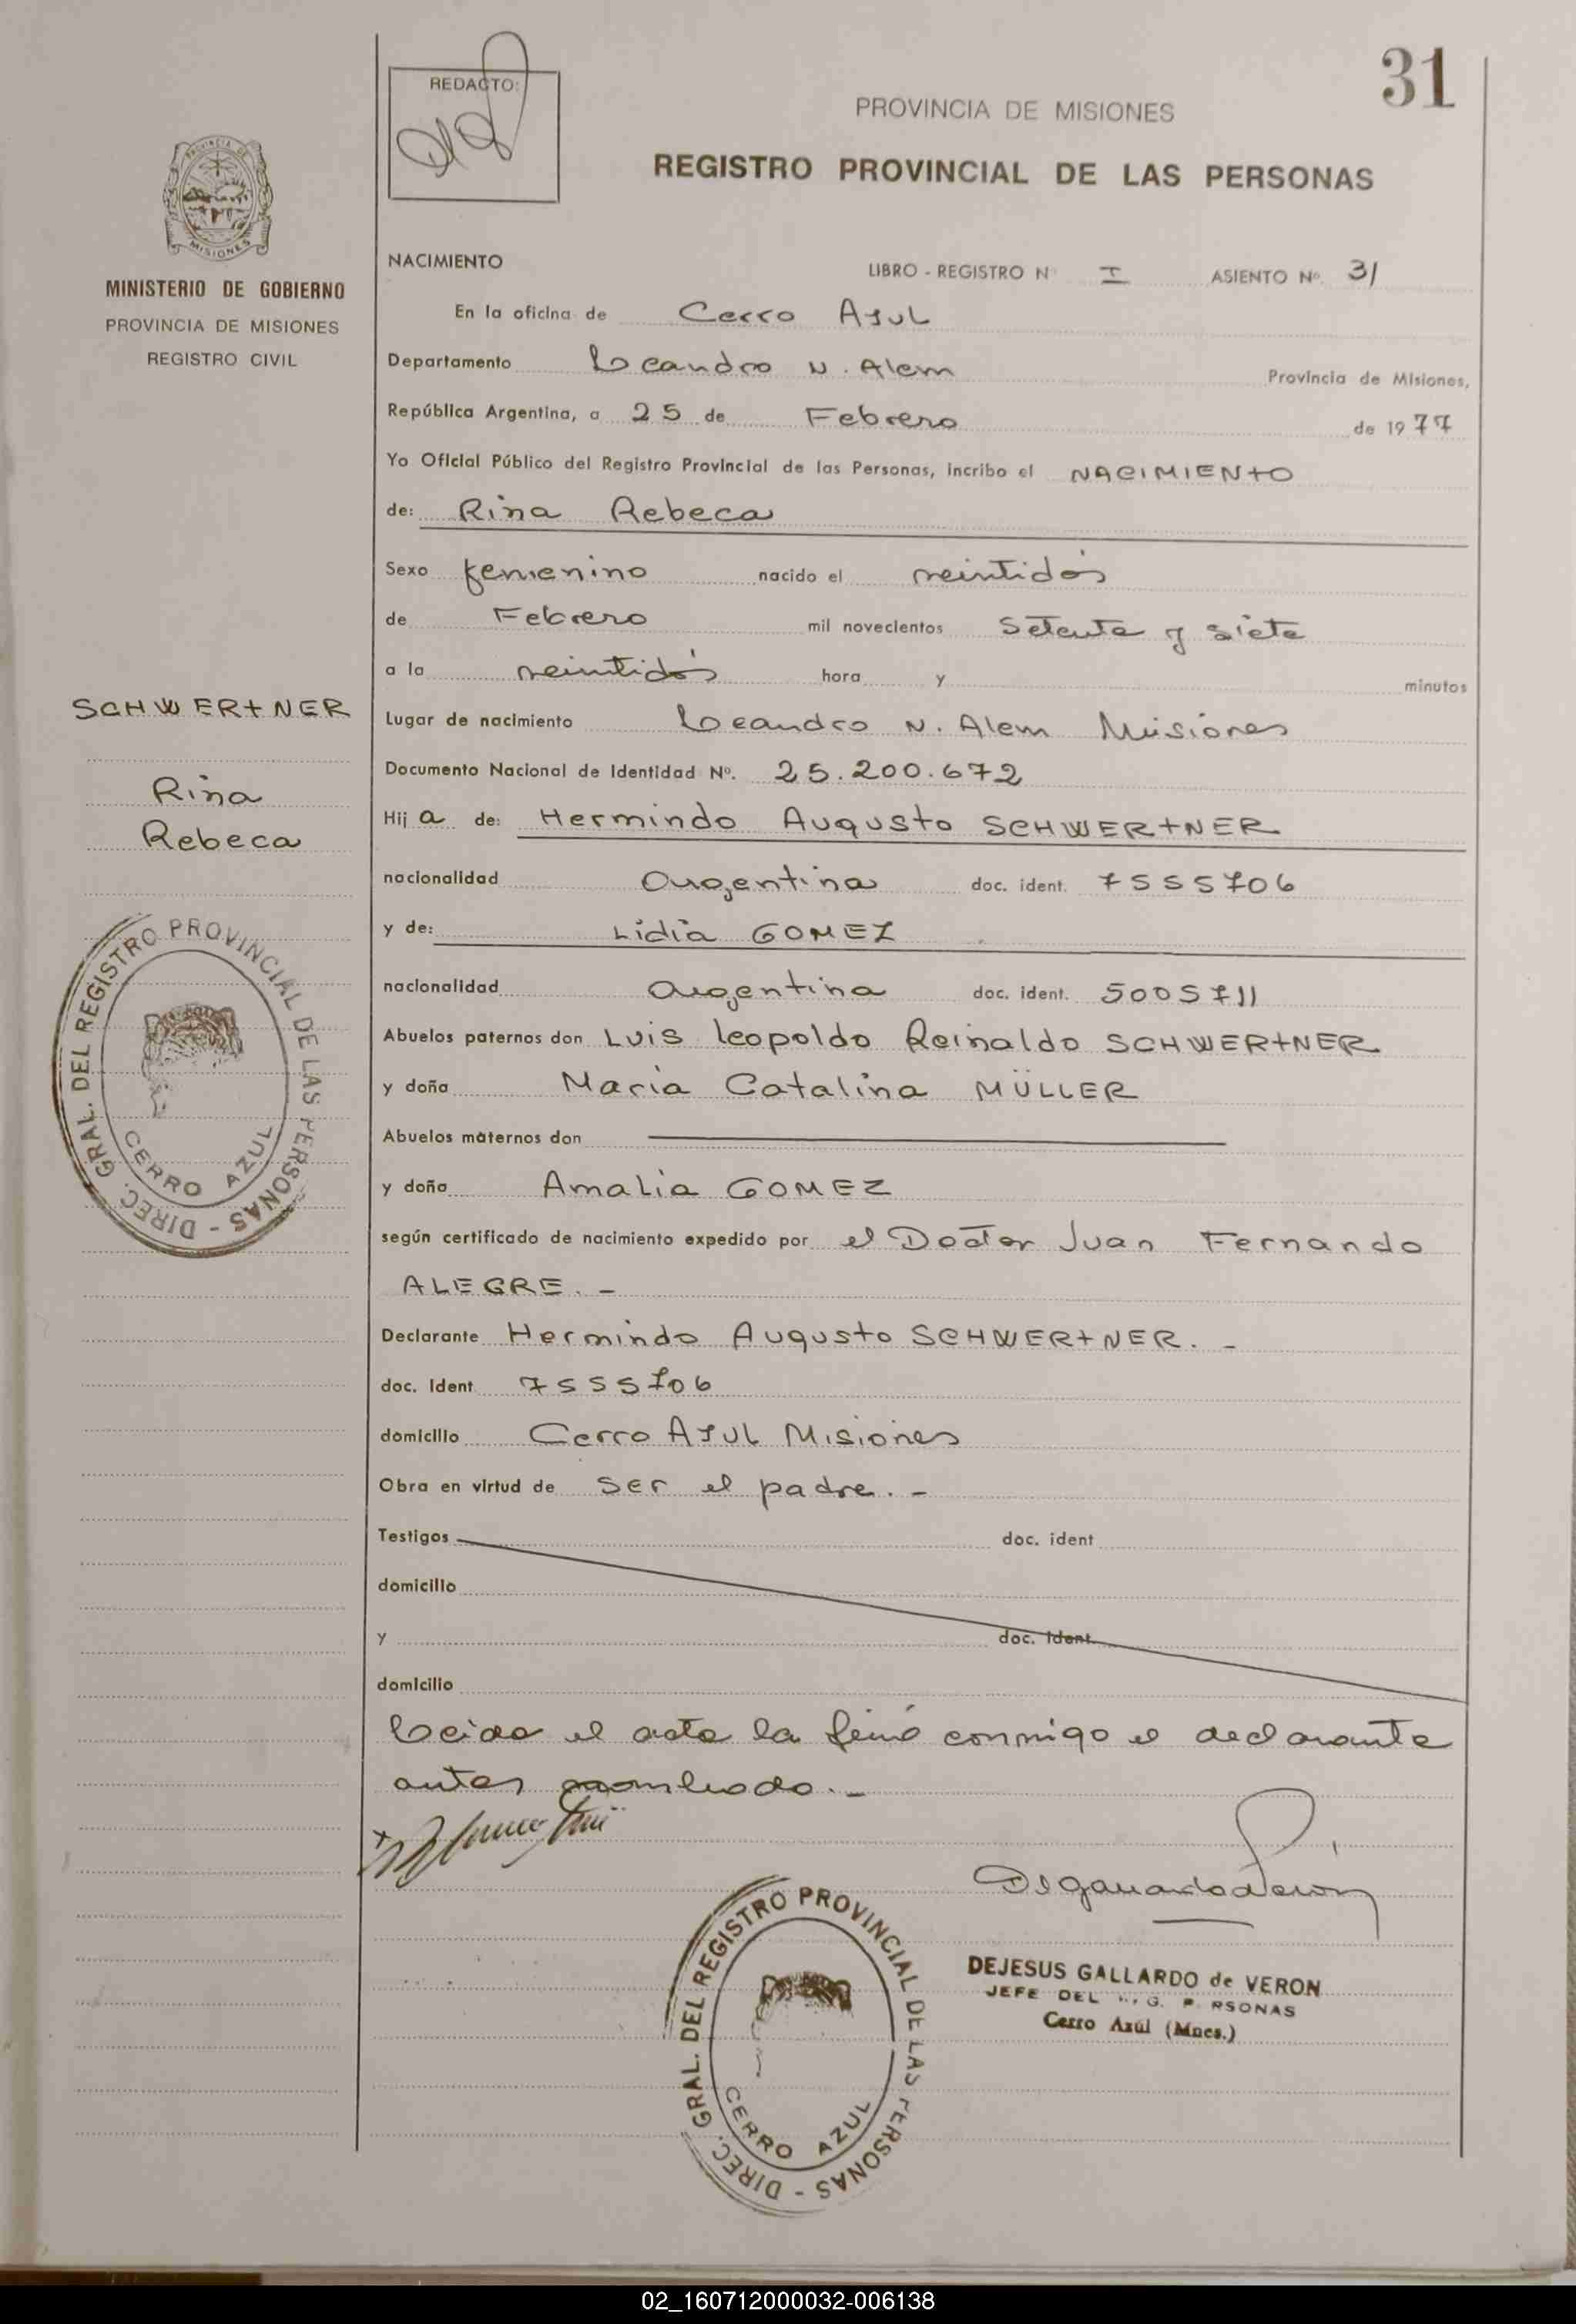 31
REDACTO:
PROVINCIA DE MISIONES
REGISTRO PROVINCIAL DE LAS PERSONAS
PROVINCIA DE
MISIONES
MINISTERIO DE GOBIERNO
PROVINCIA DE MISIONES
REGISTRO CIVIL
NACIMIENTO
LIBRO - REGISTRO Nº I ASIENTO Nº. 31
En la oficina de Cerro Asul
Departamento Leandro N. Alem Provincia de Misiones,
República Argentina, a 25 de Febrero de 1977
Yo Oficial Público del Registro Provincial de las Personas, incribo el NACIMIENTO
de: Rina Rebeca
Sexo femenino nacido el veintidós
de Febrero mil novecientos Setenta y siete
a la veintidós hora y minutos
SCHWERTNER
Rina
Rebeca
Lugar de nacimiento Leandro N. Alem Misiones
Documento Nacional de Identidad Nº. 25.200.672
Hija de: Hermindo Augusto SCHWERTNER
nacionalidad argentina doc. ident. 7555706
y de: Lidia GOMEZ
nacionalidad argentina doc. ident. 5005711
Abuelos paternos don Luis Leopoldo Reinaldo SCHWERTNER
y doña Maria Catalina MÜLLER
Abuelos maternos don
y doña Amalia GOMEZ
según certificado de nacimiento expedido por el Doctor Juan Fernando
ALEGRE. -
Declarante Hermindo Augusto SCHWERTNER. -
doc. Ident 7555706
domicilio Cerro Asul Misiones
Obra en virtud de ser el padre. -
Testigos doc. ident
domicilio
y doc. ident.
domicilio
Leida el acta la firmó conmigo el declarante
antes nombrado. -
DIREC. GRAL. DEL REGISTRO PROVINCIAL DE LAS PERSONAS -
CERRO AZUL
DEJESUS GALLARDO de VERON
JEFE DEL
Cerro Azúl (Mnes.)
DIREC. GRAL. DEL REGISTRO PROVINCIAL DE LAS PERSONAS -
CERRO AZUL
02_160712000032-006138